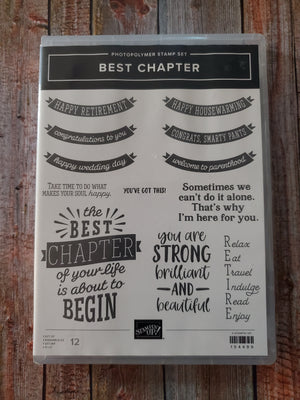 PHOTOPOLYMER STAMP SET
BEST CHAPTER
HAPPY RETIREMENT
HAPPY HOUSEWARMING
congratulations to you
CONGRATS, SMARTY PANTS
happy wedding day
welcome to parenthood
TAKE TIME TO DO WHAT
MAKES YOUR SOUL happy.
YOU'VE GOT THIS!
Sometimes we
can't do it alone.
That's why
I'm here for you.
the
BEST
CHAPTER
of your life
is about to
BEGIN
you are
STRONG
brilliant
—AND—
beautiful
Relax
Eat
Travel
Indulge
Read
Enjoy
12
STAMPIN' UP!